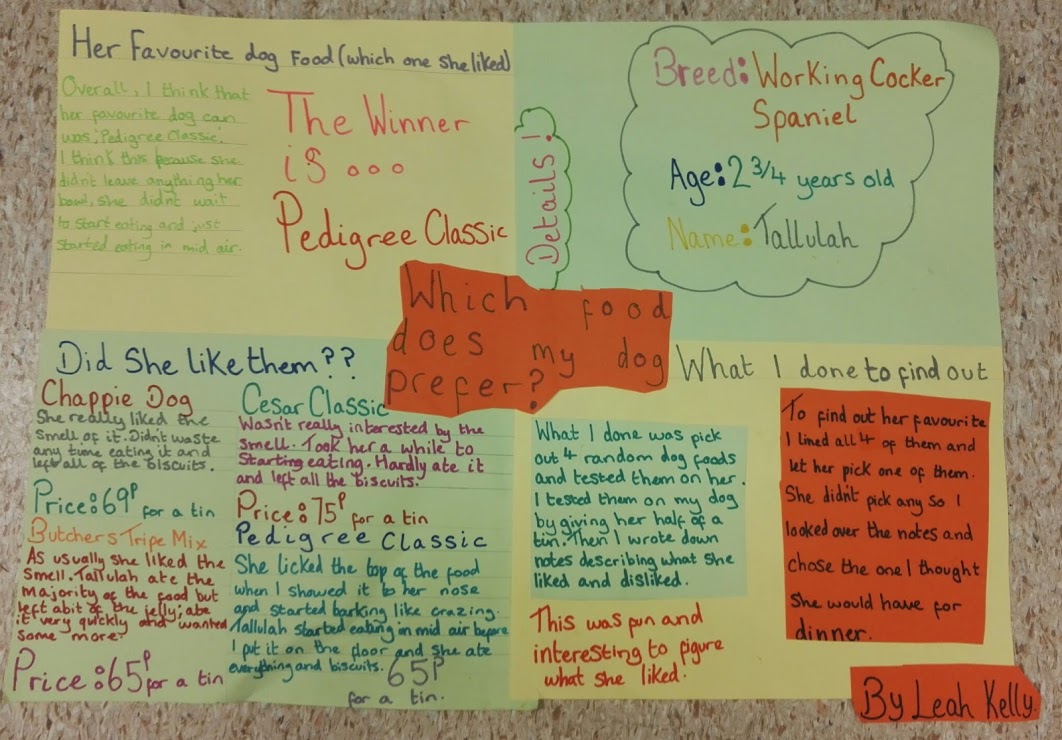 Her Favourite dog Food (which one she liked)
Overall, I think that
her favourite dog can
was, 'Pedigree Classic'.
I think this because she
didn't leave anything her
bowl, she didn't wait
to start eating and just
started eating in mid air.
The Winner
is...
Pedigree Classic
Details!
Breed: Working Cocker
Spaniel
Age: 2 3/4 years old
Name: Tallulah
Which food
does my dog
prefer?
Did She like them??
Chappie Dog
She really liked the
smell of it. Didn't waste
any time eating it and
left all of the biscuits.
Price: 69p for a tin
Butchers Tripe Mix
As usually she liked the
smell. Tallulah ate the
majority of the food but
left abit of the jelly; ate
it very quickly and wanted
some more?
Price: 65p for a tin
Cesar Classic
Wasn't really interested by the
smell. Took her a while to
starting eating. Hardly ate it
and left all the biscuits.
Price: 75p for a tin
Pedigree Classic
She licked the top of the food
when I showed it to her nose
and started barking like crazing.
Tallulah started eating in mid air before
I put it on the floor and she ate
everything and biscuits. 65p
for a tin.
What I done to find out
What I done was pick
out 4 random dog foods
and tested them on her.
I tested them on my dog
by giving her half of a
tin. Then I wrote down
notes describing what she
liked and disliked.
This was fun and
interesting to figure
what she liked.
To find out her favourite
I lined all 4 of them and
let her pick one of them.
She didn't pick any so I
looked over the notes and
chose the one I thought
she would have for
dinner.
By Leah Kelly.